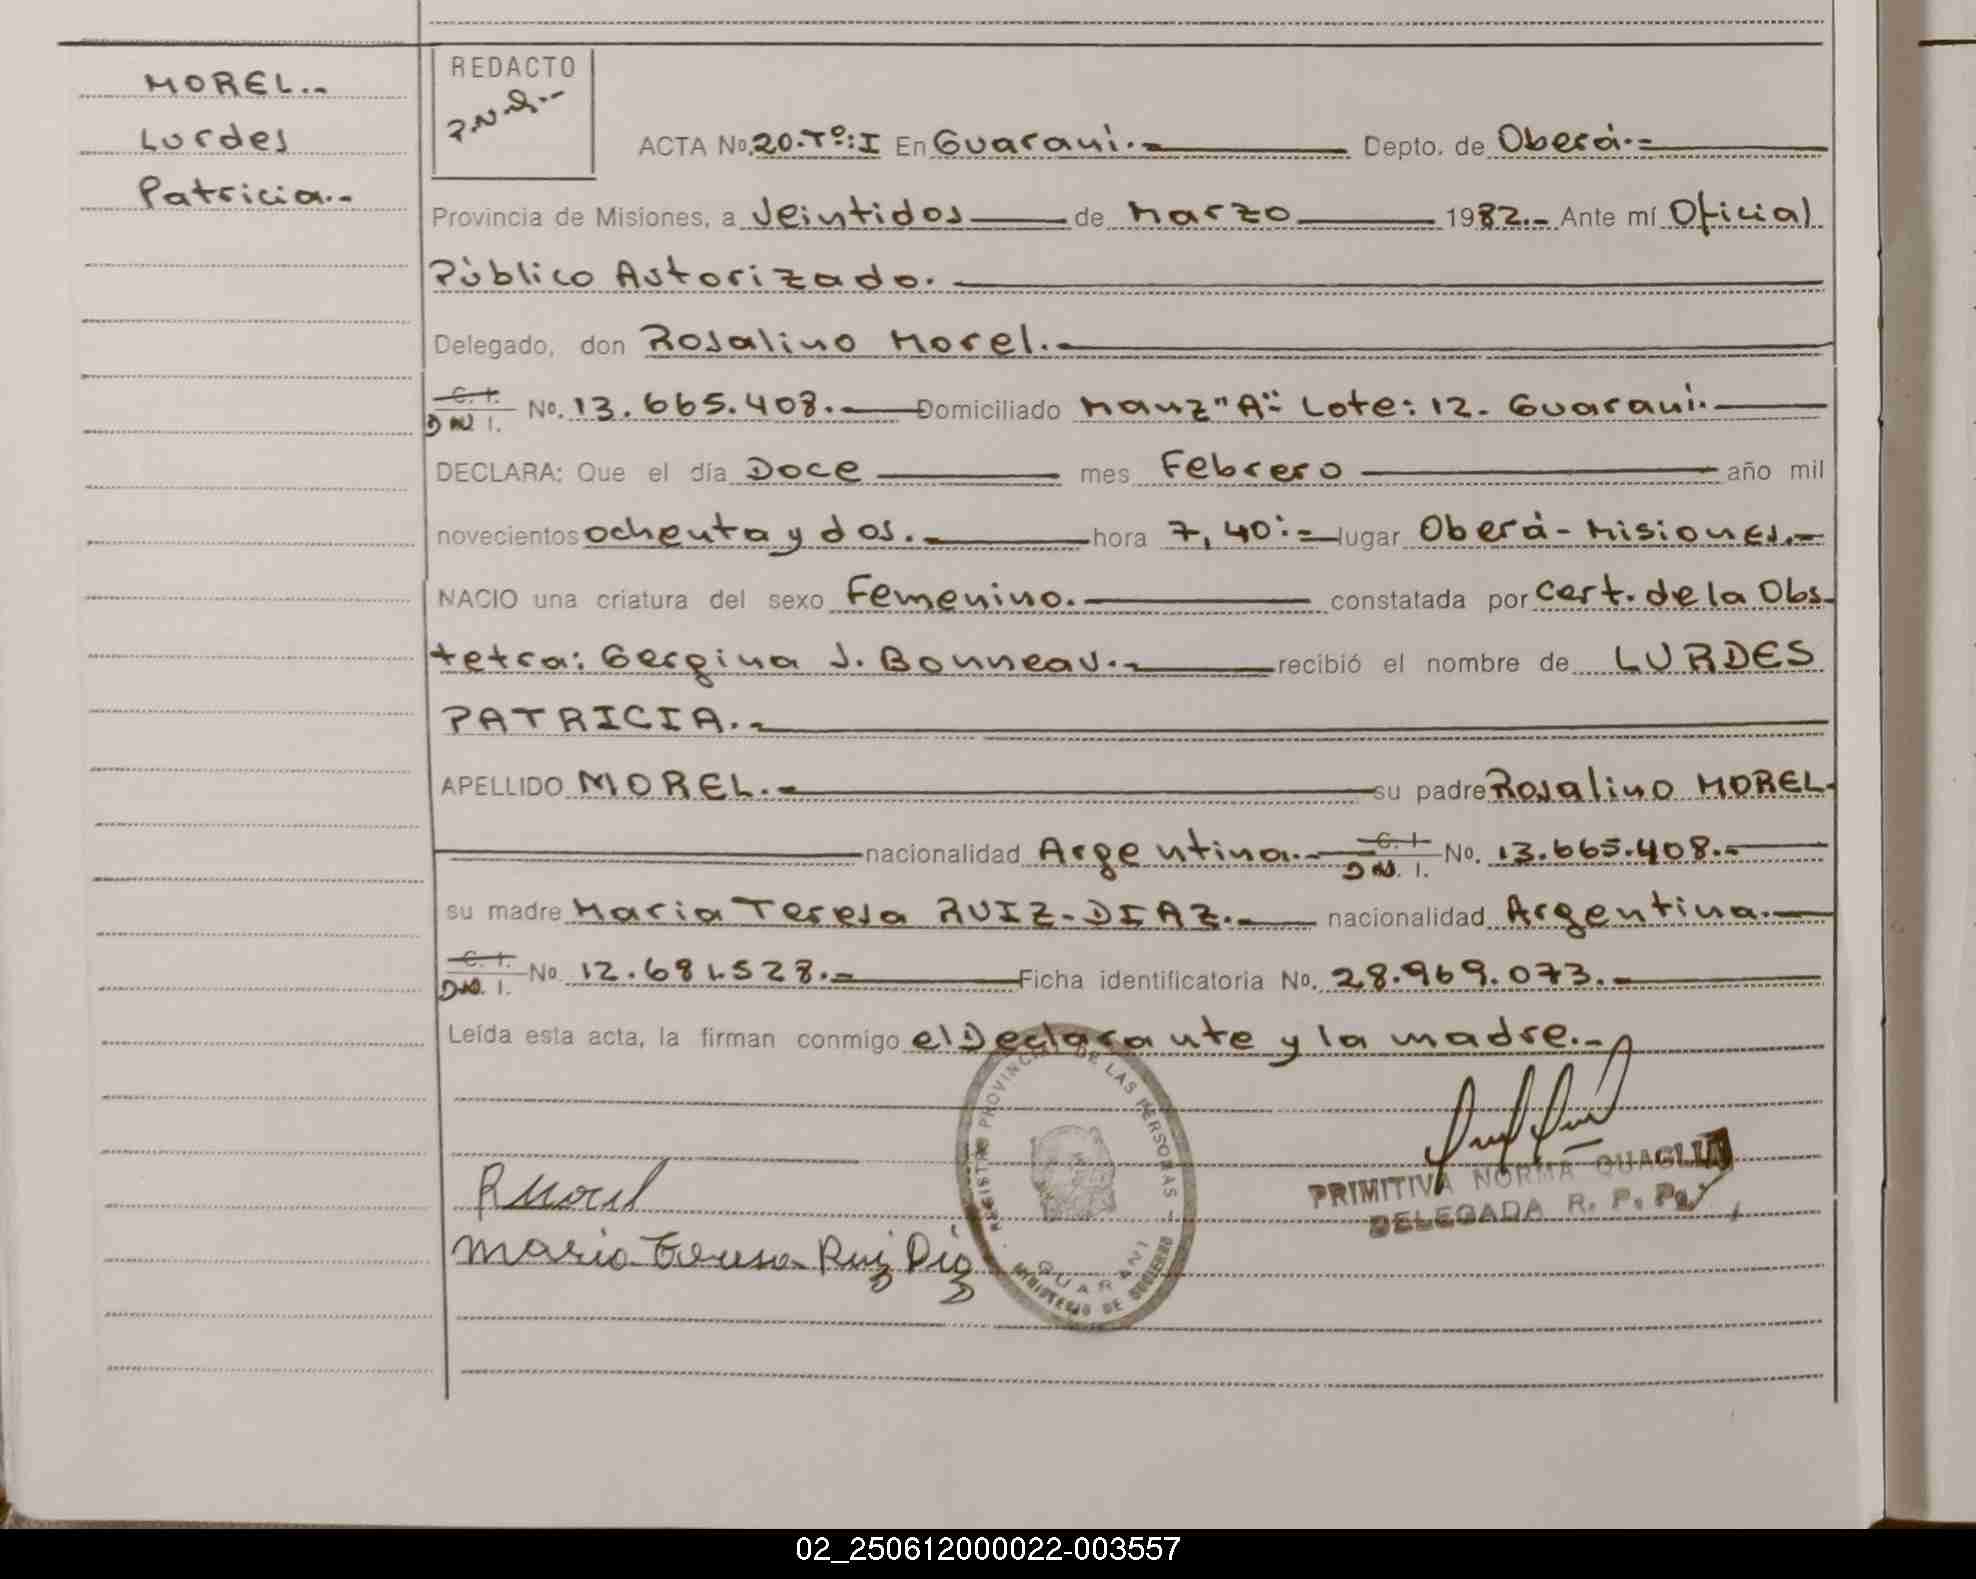 MOREL.-
Lurdes
Patricia.-
REDACTO
P.N.Q.-
ACTA No. 20.Tº:I En Guaraní.- Depto. de Oberá.-
Provincia de Misiones, a Veintidos de Marzo 1982.- Ante mí Oficial
Público Autorizado.
Delegado, don Rosalino Morel.-
C. I. No. 13.665.408.- Domiciliado Manz"A"- Lote: 12. Guaraní.-
D N I.
DECLARA: Que el día Doce mes Febrero año mil
novecientos ochenta y dos.- hora 7,40:- lugar Oberá-Misiones.-
NACIO una criatura del sexo Femenino.- constatada por Cert. de la Obs-
tetra: Gergina J. Bonneau.- recibió el nombre de LURDES
PATRICIA.-
APELLIDO MOREL.- su padre Rosalino MOREL-
nacionalidad Argentina.- C. I. No. 13.665.408.-
D N. I.
su madre Maria Teresa RUIZ-DIAZ.- nacionalidad Argentina.-
C. I. No. 12.681.528.- Ficha identificatoria No. 28.969.073.-
D N. I.
Leída esta acta, la firman conmigo el Declarante y la madre.-
REGISTRO PROVINCIAL DE LAS PERSONAS -
GUARANI
MINISTERIO DE GOBIERNO
PRIMITIVA NORMA QUAGLIA
DELEGADA R. P. P.
R Morel
Maria Teresa Ruiz Diaz
02_250612000022-003557